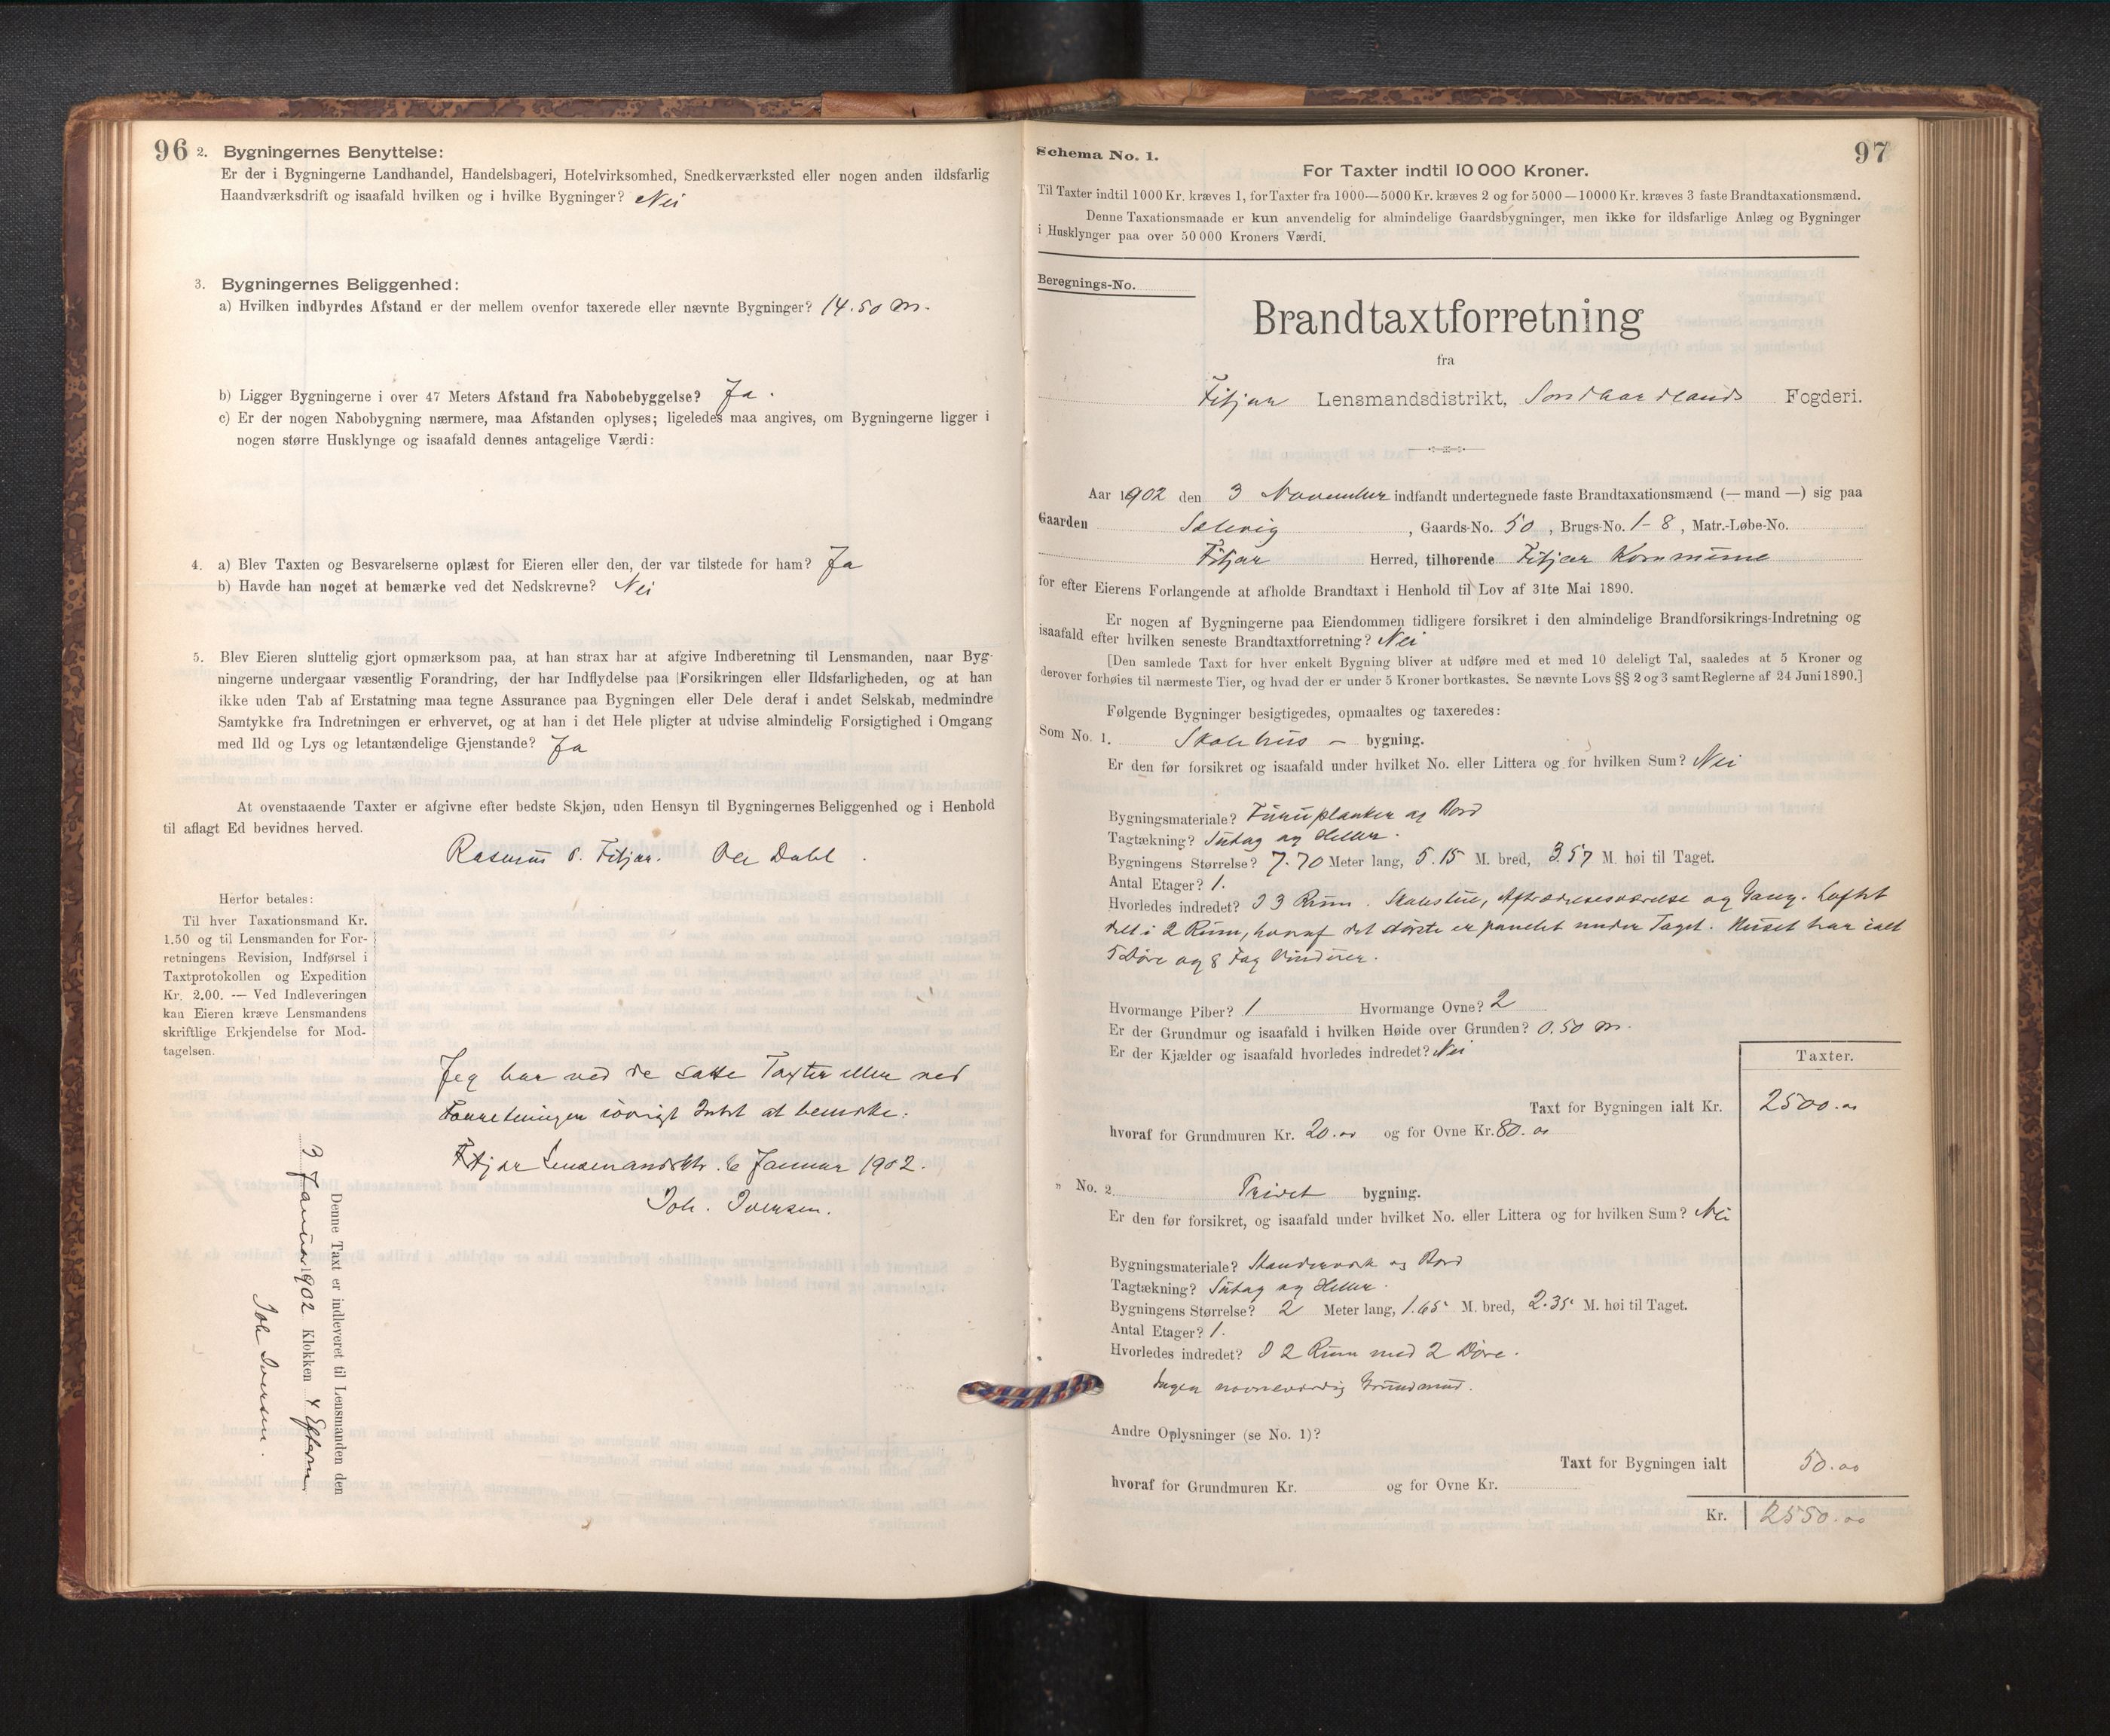 96
2. Bygningernes Benyttelse:
Er der i Bygningerne Landhandel, Handelsbageri, Hotelvirksomhed, Snedkerværksted eller nogen anden ildsfarlig
Haandværksdrift og isaafald hvilken og i hvilke Bygninger? Nei
3. Bygningernes Beliggenhed:
a) Hvilken indbyrdes Afstand er der mellem ovenfor taxerede eller nævnte Bygninger? 14.50 m.
b) Ligger Bygningerne i over 47 Meters Afstand fra Nabobebyggelse? Ja.
c) Er der nogen Nabobygning nærmere, maa Afstanden oplyses; ligeledes maa angives, om Bygningerne ligger i
nogen større Husklynge og isaafald dennes antagelige Værdi:
4. a) Blev Taxten og Besvarelserne oplæst for Eieren eller den, der var tilstede for ham? Ja
b) Havde han noget at bemærke ved det Nedskrevne? Nei
5. Blev Eieren sluttelig gjort opmærksom paa, at han strax har at afgive Indberetning til Lensmanden, naar Byg-
ningerne undergaar væsentlig Forandring, der har Indflydelse paa Forsikringen eller Ildsfarligheden, og at han
ikke uden Tab af Erstatning maa tegne Assurance paa Bygningen eller Dele deraf i andet Selskab, medmindre
Samtykke fra Indretningen er erhvervet, og at han i det Hele pligter at udvise almindelig Forsigtighed i Omgang
med Ild og Lys og letantændelige Gjenstande? Ja
At ovenstaaende Taxter er afgivne efter bedste Skjøn, uden Hensyn til Bygningernes Beliggenhed og i Henhold
til aflagt Ed bevidnes herved.
Rasmus O. Fitjar. Ole Dahl.
Herfor betales:
Til hver Taxationsmand Kr.
1.50 og til Lensmanden for For-
retningens Revision, Indførsel i
Taxtprotokollen og Expedition
Kr. 2.00. — Ved Indleveringen
kan Eieren kræve Lensmandens
skriftlige Erkjendelse for Mod-
tagelsen.
Jeg har ved de satte Taxter eller ved
Forretningen iøvrigt Intet at bemærke.
Fitjar Lensmandsktr. 6 Januar 1902.
Joh. Iversen.
Denne Taxt er indleveret til Lensmanden den
3 Januar 1902 Klokken 4 Efterm
Joh Iversen.
97
Schema No. 1.
For Taxter indtil 10 000 Kroner.
Til Taxter indtil 1000 Kr. kræves 1, for Taxter fra 1000—5000 Kr. kræves 2 og for 5000—10000 Kr. kræves 3 faste Brandtaxationsmænd.
Denne Taxationsmaade er kun anvendelig for almindelige Gaardsbygninger, men ikke for ildsfarlige Anlæg og Bygninger
i Husklynger paa over 50 000 Kroners Værdi.
Beregnings-No.
Brandtaxtforretning
fra
Fitjar Lensmandsdistrikt, Søndhordlands Fogderi.
Aar 1902 den 3 November indfandt undertegnede faste Brandtaxationsmænd (— mand —) sig paa
Gaarden Sælevig, Gaards-No. 50, Brugs-No. 1-8, Matr.-Løbe-No.
Fitjar Herred, tilhørende Fitjar Kommune
for efter Eierens Forlangende at afholde Brandtaxt i Henhold til Lov af 31te Mai 1890.
Er nogen af Bygningerne paa Eiendommen tidligere forsikret i den almindelige Brandforsikrings-Indretning og
isaafald efter hvilken seneste Brandtaxtforretning? Nei
[Den samlede Taxt for hver enkelt Bygning bliver at udføre med et med 10 deleligt Tal, saaledes at 5 Kroner og
derover forhøies til nærmeste Tier, og hvad der er under 5 Kroner bortkastes. Se nævnte Lovs §§ 2 og 3 samt Reglerne af 24 Juni 1890.]
Følgende Bygninger besigtigedes, opmaaltes og taxeredes:
Som No. 1. Skolehus - bygning.
Er den før forsikret og isaafald under hvilket No. eller Littera og for hvilken Sum? Nei
Bygningsmateriale? Furuplanker og Bord
Tagtækning? Sutag og Heller.
Bygningens Størrelse? 7.70 Meter lang, 5.15 M. bred, 3.57 M. høi til Taget.
Antal Etager? 1.
Hvorledes indredet? I 3 Rum. Skolestue, Aftrædelsesværelse og Gang. Loftet
delt i 2 Rum, hvoraf det største er panelet under Taget. Huset har ialt
5 Døre og 8 Fag Vinduer.
Hvormange Piber? 1 Hvormange Ovne? 2
Er der Grundmur og isaafald i hvilken Høide over Grunden? 0.50 m.
Er der Kjælder og isaafald hvorledes indredet? Nei
Taxter.
Taxt for Bygningen ialt Kr. 2500.00
hvoraf for Grundmuren Kr. 20.00 og for Ovne Kr. 80.00
„ No. 2. Privet bygning.
Er den før forsikret, og isaafald under hvilket No. eller Littera og for hvilken Sum? Nei
Bygningsmateriale? Standerværk og Bord
Tagtækning? Sutag og Heller.
Bygningens Størrelse? 2 Meter lang, 1.65 M. bred, 2.35 M. høi til Taget.
Antal Etager? 1.
Hvorledes indredet? I 2 Rum med 2 Døre.
Ingen nævneværdig Grundmur.
Andre Oplysninger (se No. 1)?
Taxt for Bygningen ialt 50.00
hvoraf for Grundmuren Kr. og for Ovne Kr.
Kr. 2550.00